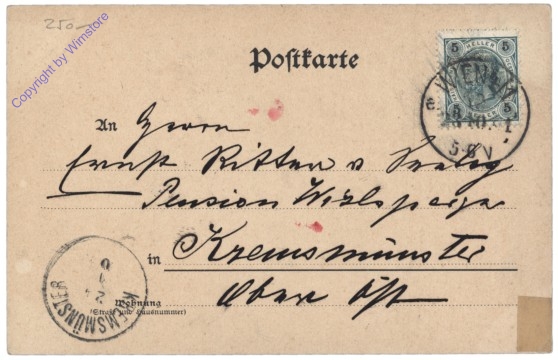 250-
Copyright by Wimstore
Postkarte
5 HELLER 5
5 5
WIEN
5-6 V
An Herrn
Ernst Ritter v
Pension
in Kremsmünster
Ober Öst
Wohnung
(Straße und Hausnummer)
KREMSMÜNSTER